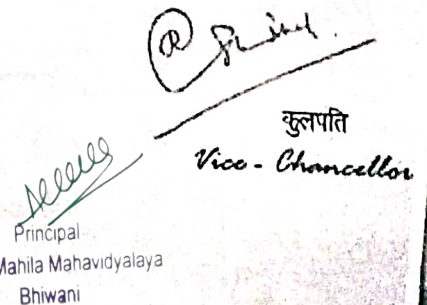 कुलपति
Vice - Chancellor
Principal
Mahila Mahavidyalaya
Bhiwani